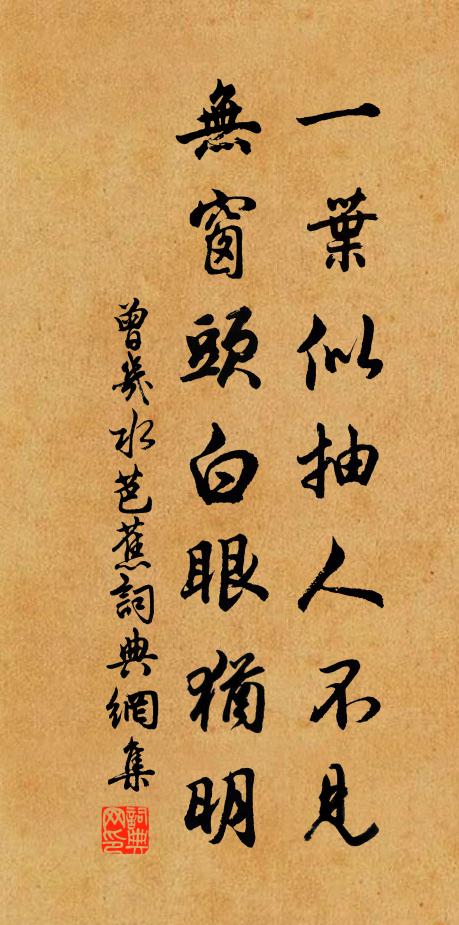 一葉似抽人不見
無窗頭白眼猶明
曾幾水芭蕉詞典網集
詞典網印